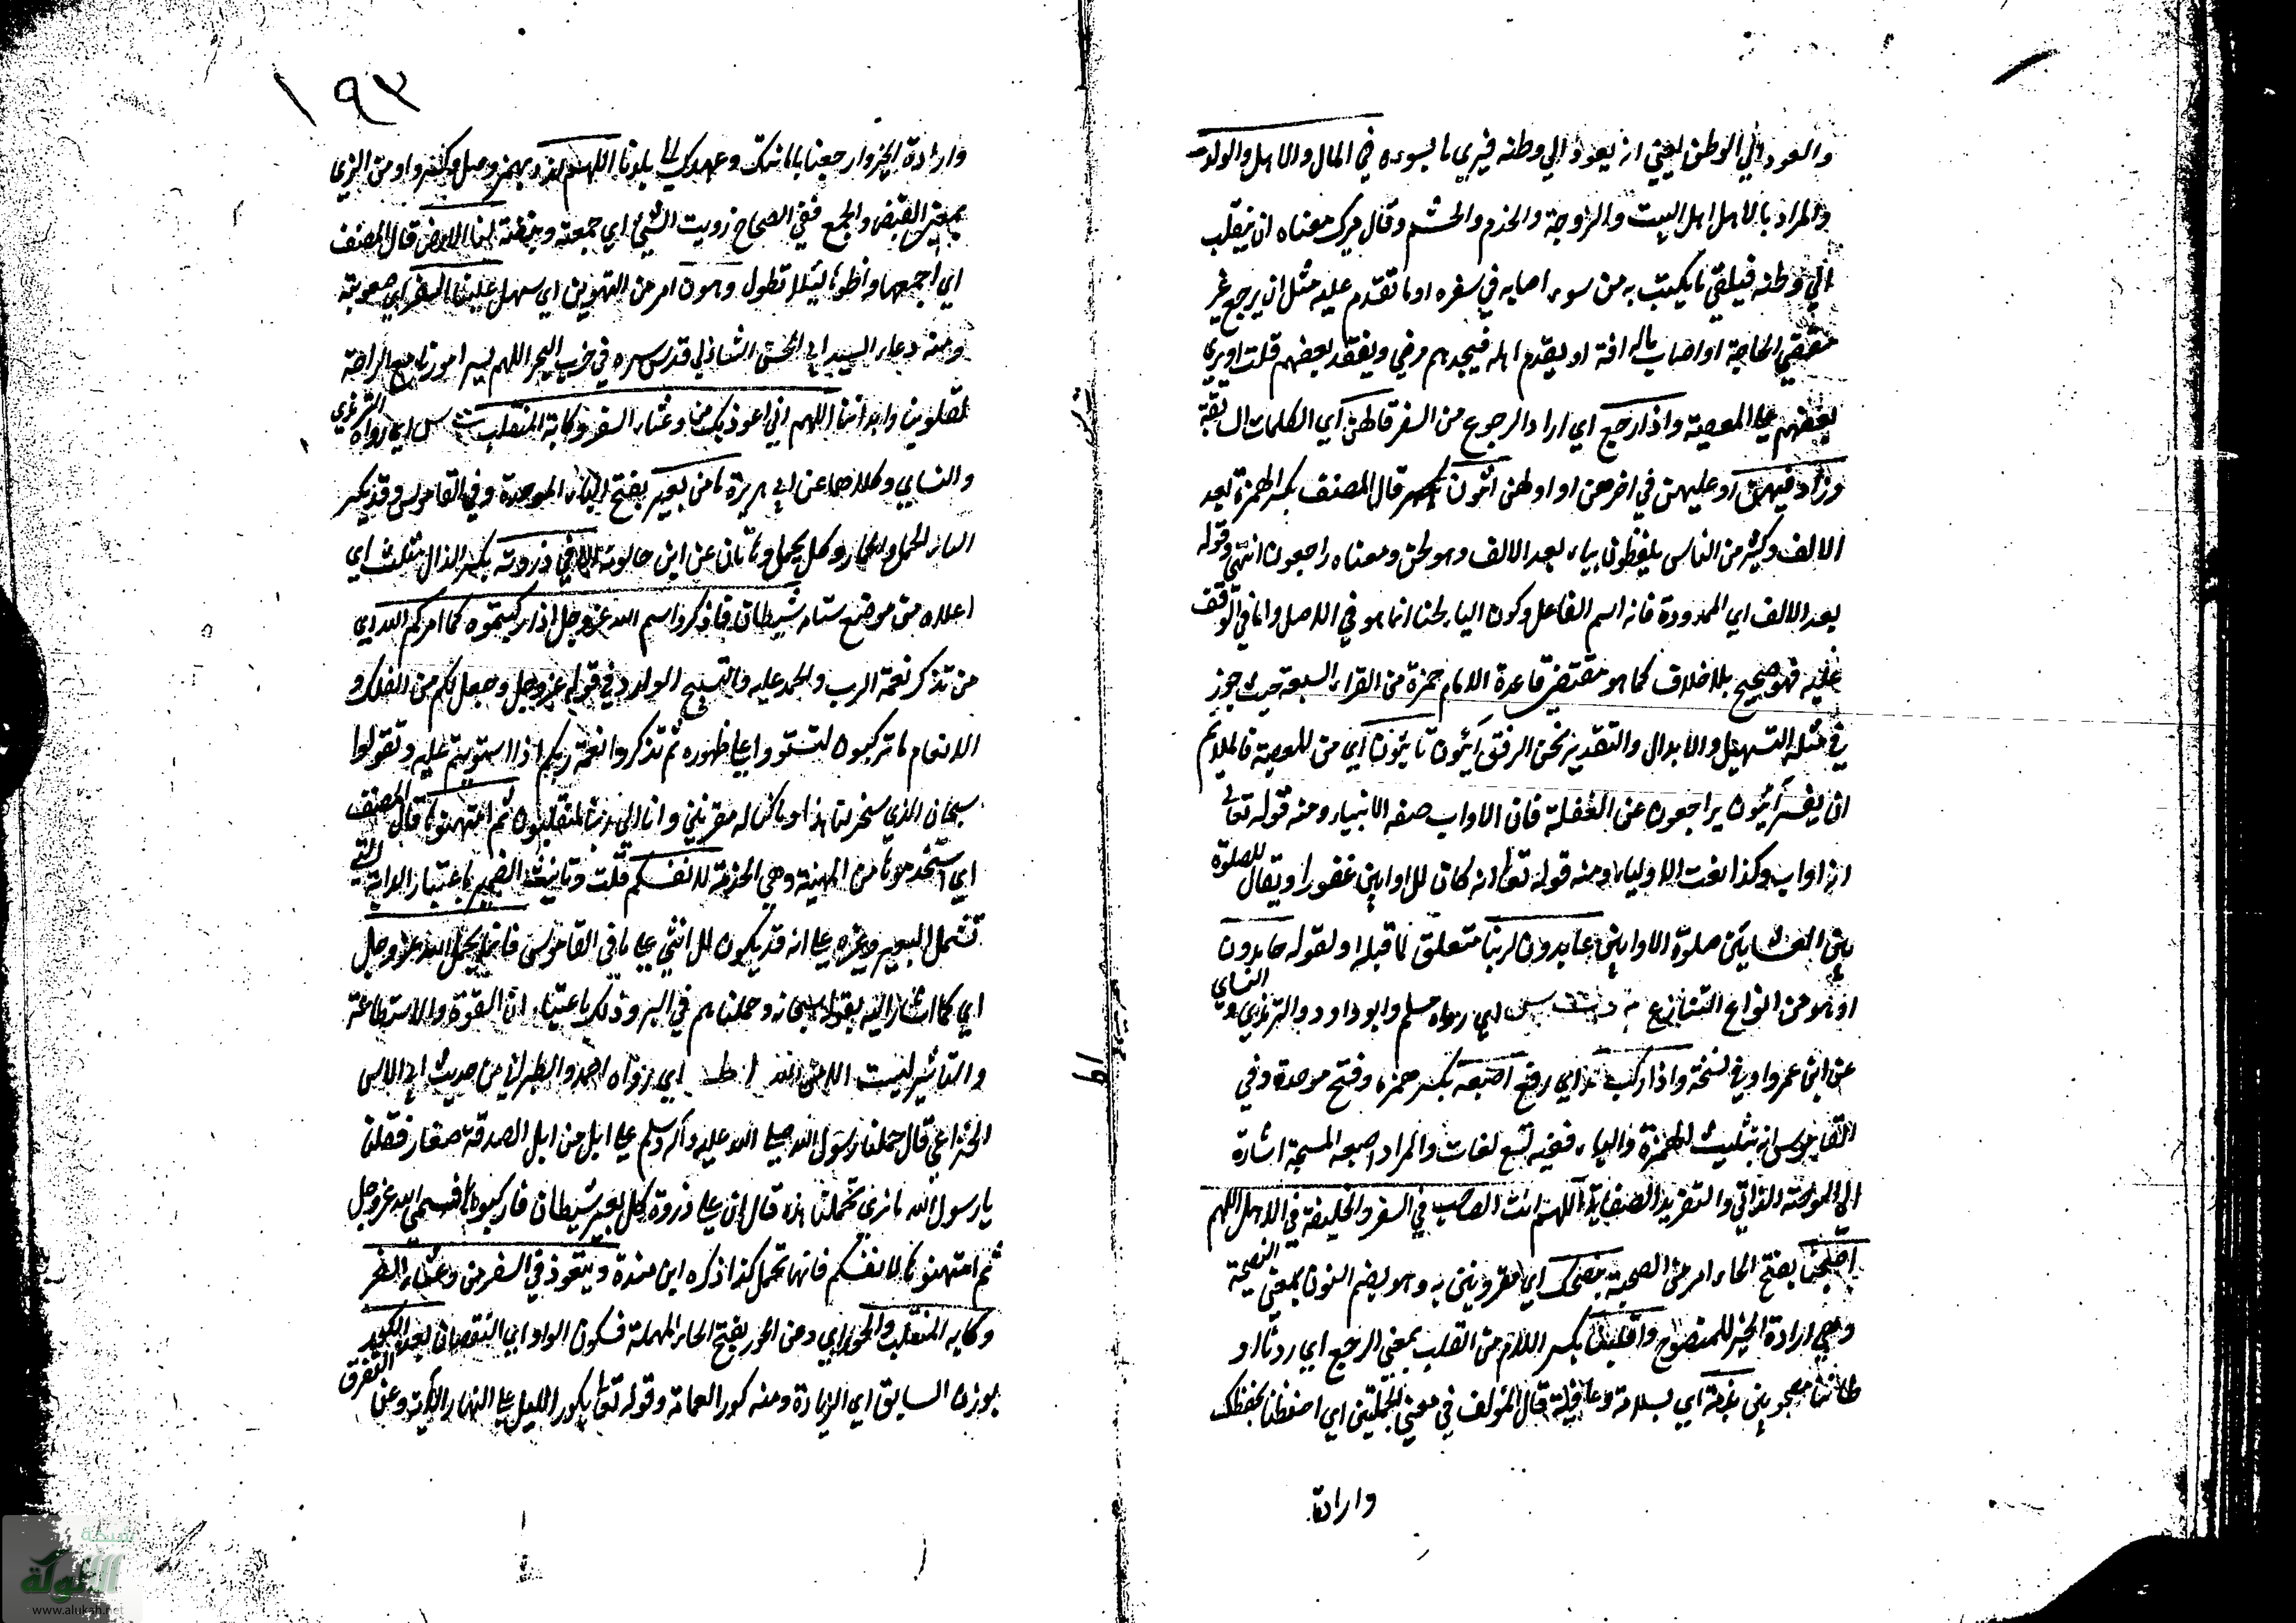 والعود الي الوطن يعني انه يعود الي وطنه فيري ما يسوءه في المال والاهل والولد
والمراد بالاهل اهل البيت والزوجة والخدم والحشم وقال ميرك معناه ان ينقلب
الي وطنه فيلقي ما يكتئب به من سوء اصابه في سفره او ما تقدم عليه مثل ان يرجع غير
مقضي الحاجة او اصاب ماله افة او يقدم اهله فيجدهم مرضي ويفقد بعضهم قلت او يري
بعضهم علي المعصية واذا رجع اي اراد الرجوع من السفر قالهن اي الكلمات السابقة
وزاد فيهن او عليهن في اخرهن او اولهن ائبون قال المصنف بكسر الهمزة بعد
الالف وكثير من الناس يلفظون بياء بعد الالف وهو لحن ومعناه راجعون انتهي وقوله
بعد الالف اي الممدودة فانه اسم الفاعل وكون الياء لحنا انما هو في الاصل واما في الوقف
عليه فهو صحيح بلا خلاف كما هو مقتضي قاعدة الامام حمزة من القراء السبعة حيث جوز
في مثله التسهيل والابدال والتقدير نحن الرفق ائبون تائبون اي من المعصية فالملائم
ان يفسر ائبون براجعون عن الغفلة فان الاواب صفة الانبياء ومنه قوله تعالي
انه اواب وكذا نعت الاولياء ومنه قوله تعالي انه كان للاوابين غفورا ويقال للصلوة
بين العشائين صلوة الاوابين عابدون لربنا متعلق بما قبله او لقوله حامدون
او هو من انواع التنازع م د ت س اي رواه مسلم وابو داود والترمذي والنسائي
عن ابن عمر او وفي نسخة واذا ركب مد اي رفع اصبعه بكسر همزه وفتح موحدة وفي
القاموس انه بتثليث الهمزة والباء ففيه تسع لغات والمراد اصبعه المسبحة اشارة
الي الوحدة الذاتي والتفريد الصفاتية اللهم انت الصاحب في السفر والخليفة في الاهل اللهم
اصحبنا بفتح الحاء امر من الصحبة بنصحك اي مقرونين به وهو بضم النون بمعني النصيحة
وهي ارادة الخير للمنصوح واقلبنا بكسر اللام من القلب بمعني الرجع اي ردنا او
بذمة اي بسلامة وعافية قال المؤلف في معني الجملتين اي احفظنا بحفظك
وارادة
١٩٣
وارادة الخير وارجعنا بامانتك وعهدك الي بلدنا اللهم ازو بهمز وصل وكسر واو من الزي
بمعني القبض والجمع ففي الصحاح زويت الشئ اي جمعته وقبضته لنا الارض قال المصنف
اي اجمعها واطوها لئلا تطول وهون امر من التهوين اي سهل علينا السفر اي صعوبته
ومنه دعاء السيد ابي الحسن الشاذلي قدس سره في حزب البحر اللهم يسر امورنا مع الراحة
لقلوبنا وابداننا اللهم اني اعوذ بك من وعثاء السفر وكابة المنقلب ت س اي رواه الترمذي
والنسايي وكلاهما عن ابي هريرة ما من بعير بفتح الباء الموحدة وفي القاموس وقد يكسر
الباء الجمل والحمار وكل يحمل الا في ذروته بكسر الذال مثلث اي
اعلاه من موضع سنامه شيطان فاذكروا اسم الله عز وجل اذا ركبتموه كما امركم الله اي
من تذكر نعمة الرب والحمد عليه والتسبيح الوارد في قوله عز وجل وجعل لكم من الفلك و
الانعام ما تركبون لتستووا علي ظهوره ثم تذكروا نعمة ربكم اذا استويتم عليه وتقولوا
سبحان الذي سخر لنا هذا وما كنا له مقرنين وانا الي ربنا لمنقلبون ثم امتهنوها قال المصنف
اي استخدموها من المهنة وهي الخدمة لانفسكم قلت وتانيث الضمير باعتبار الدابة التي
تشمل البعير وغيره علي انه قد يكون للانثي علي ما في القاموس فانما يحمل الله عز وجل
اي كما اشار اليه بقوله سبحانه وحملناهم في البر وذلك باعتبار ان القوة والاستطاعة
والتاثير ليست الا من الله ا ط اي رواه احمد والطبراني من حديث ابي الاس
الخزاعي قال حملنا رسول الله صلي الله عليه وآله وسلم علي ابل من ابل الصدقة صغار فقلنا
يا رسول الله ما نري تحملنا هذه قال ان علي ذروة كل بعير شيطان فاركبوها فسمي الله عز وجل
ثم امتهنوها لانفسكم فانها تحمل كذا ذكره ابن مندة ويتعوذ في السفر من وعثاء السفر
وكابه المنقلب والحور اي ومن الحور بفتح الحاء المهملة فسكون الواو اي النقصان بعد الكور
بوزن السابق اي الزيادة ومنه كور العمامة وقوله تعالي يكور الليل علي النهار الآية وعن التفرق